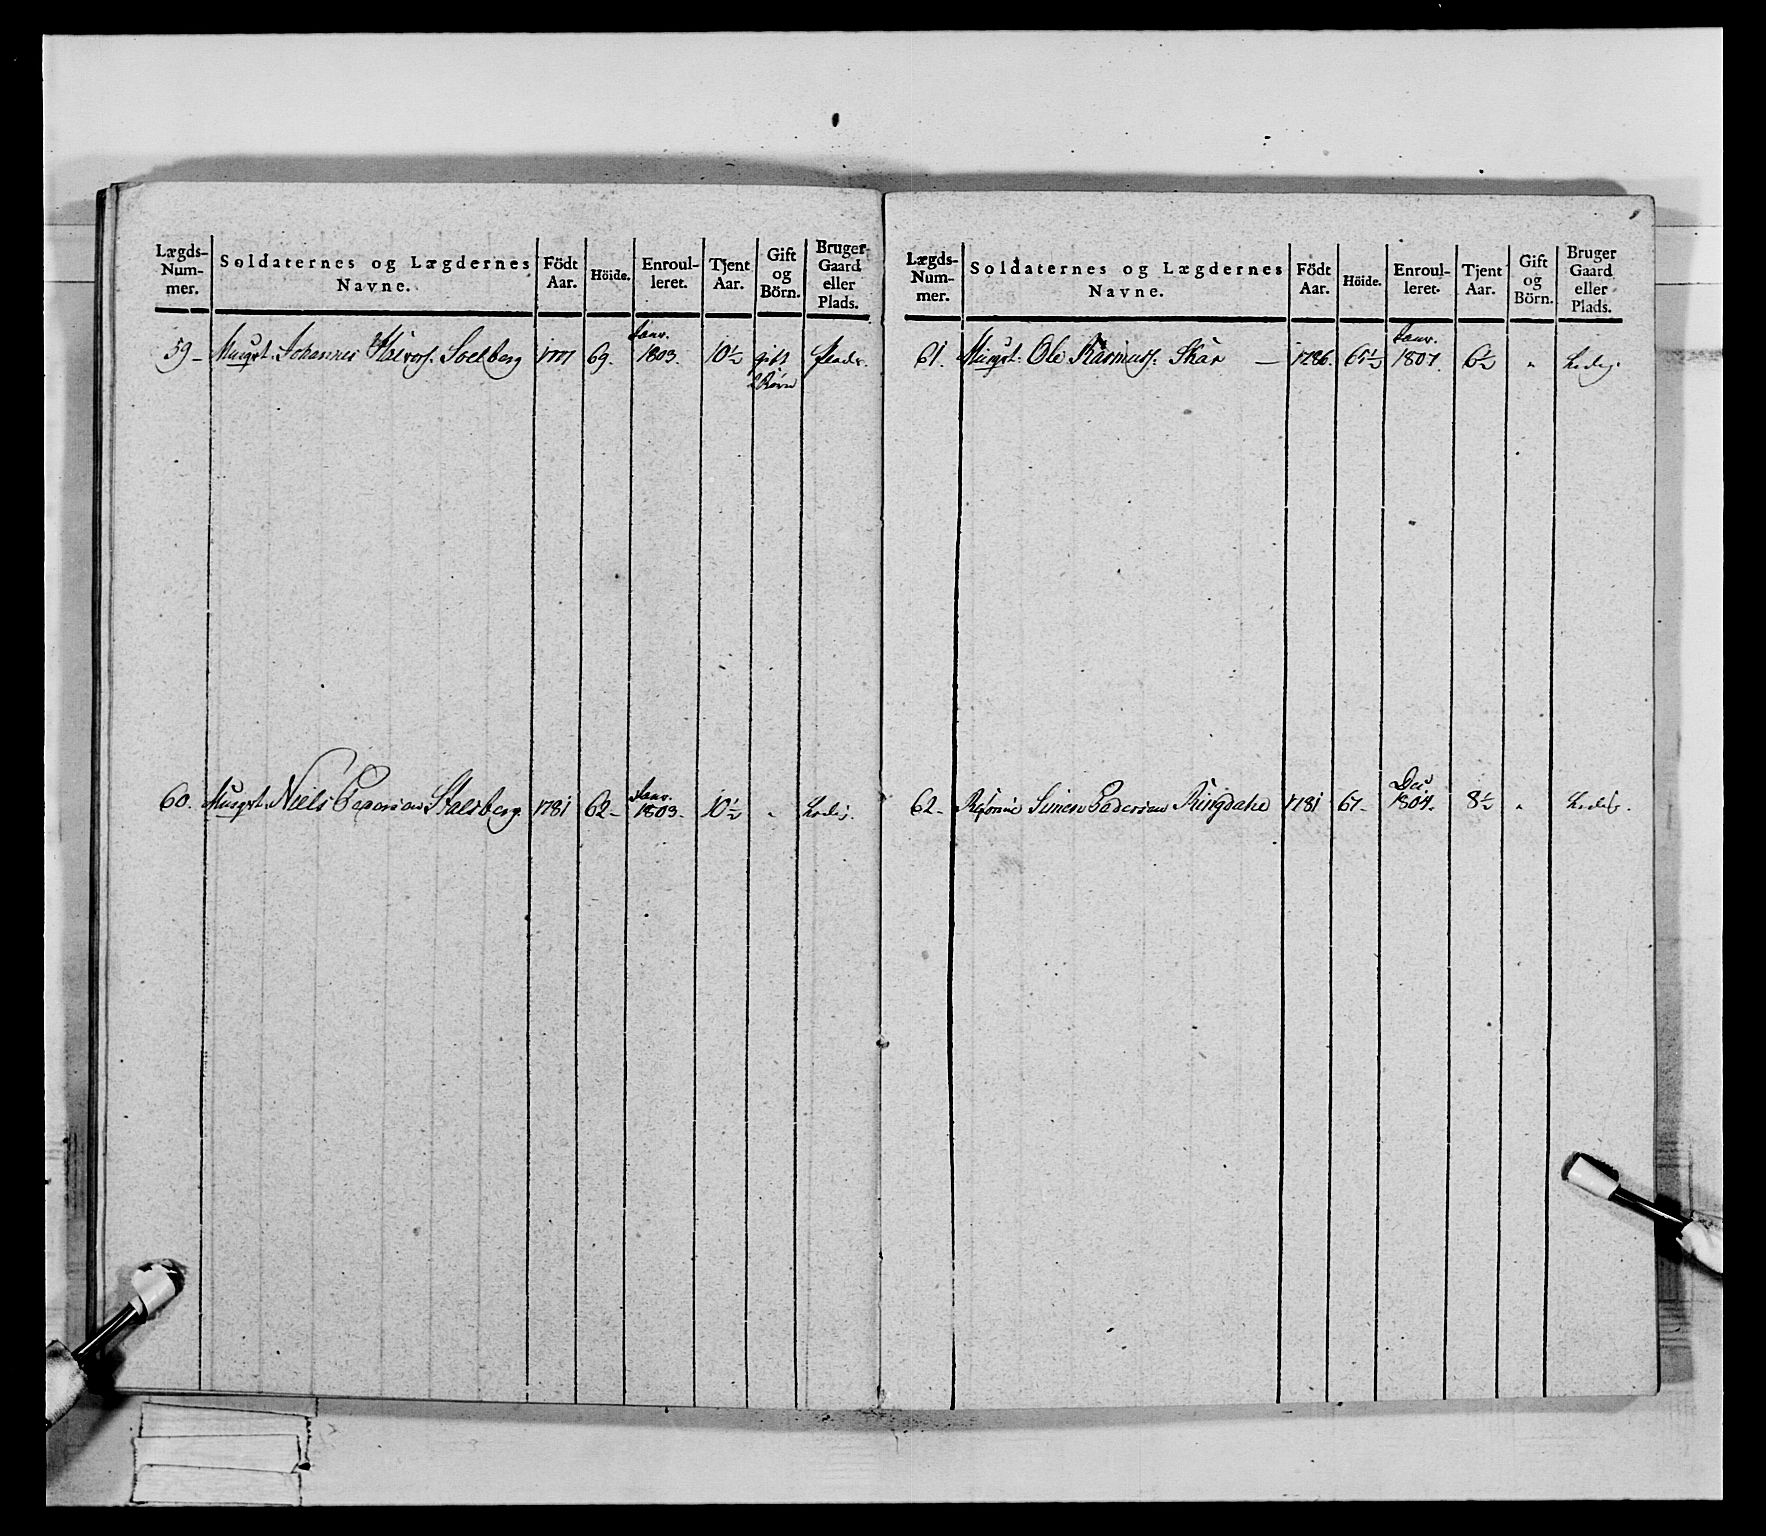 Lægds-
Num-
mer.
Soldaternes og Lægdernes
Navne.
Födt
Aar.
Höide.
Enroul-
leret.
Tjent
Aar.
Gift
og
Börn.
Bruger
Gaard
eller
Plads.
Janv.
59 - Musqt. Johannes Halvors. Soelberg 1777 69. 1803. 10½ gift Plads.
2 Børn
Janv.
60. Musqt. Niels Pedersen Stalsberg 1781 62 - 1803. 10½ " Ledig.
Lægds-
Num-
mer.
Soldaternes og Lægdernes
Navne.
Födt
Aar.
Höide.
Enroul-
leret.
Tjent
Aar.
Gift
og
Börn.
Bruger
Gaard
eller
Plads.
Janv.
61. Musqt. Ole Rasmuss. Skar — 1786. 65½ 1807. 6½ " Ledig.
Dec.
62 - Simen Pedersen Ringdahl 1781 67 - 1804. 8½ " Ledig.